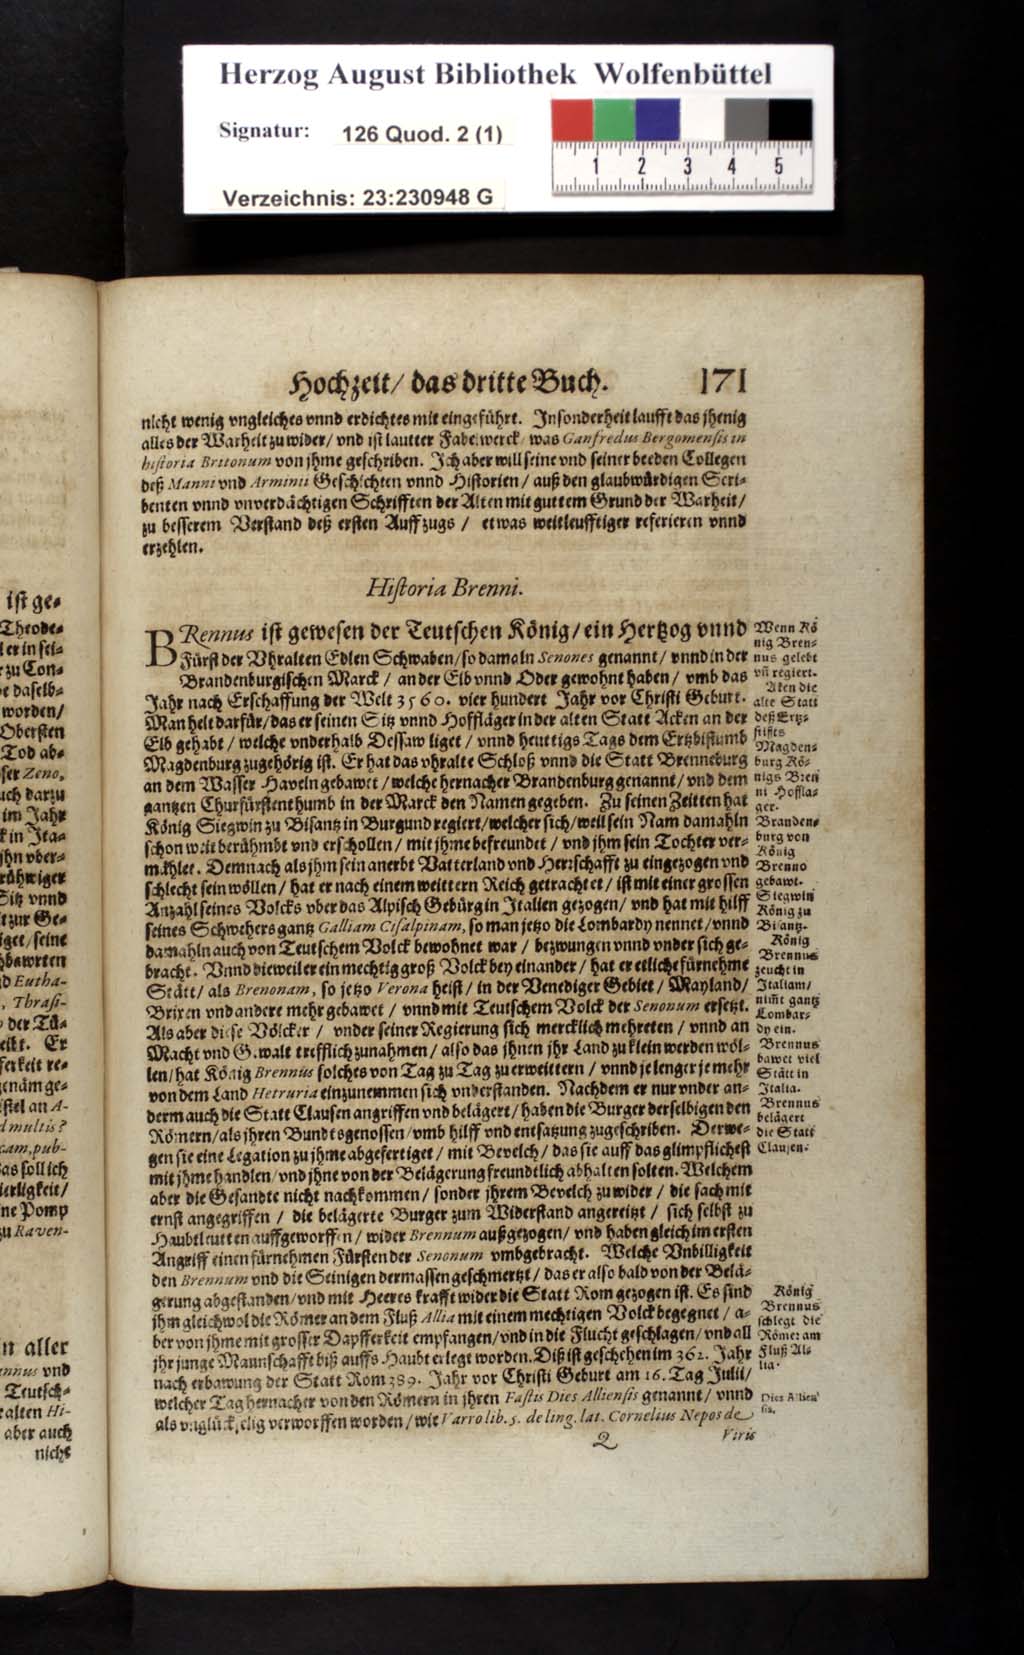 Herzog August Bibliothek Wolfenbüttel
Signatur: 126 Quod. 2 (1)
1 2 3 4 5
Verzeichnis: 23:230948 G
Hochzeit/ das dritte Buch. 171
nicht wenig vngleiches vnnd erdichtes mit eingeführt. Insonderheit laufft das jhenig
alles der Warheit zu wider/ vnd ist lautter Fabelwerck/ was Ganfredus Bergomensis in
historia Britonum von jhme geschriben. Ich aber will seine vnd seiner beeden Collegen
deß Manni vnd Arminii Geschichten vnnd Historien/ auß den glaubwürdigen Scri-
benten vnnd vnverdächtigen Schrifften der Alten mit guttem Grund der Warheit/
zu besserem Verstand deß ersten Auffzugs / etwas weitleufftiger referieren vnnd
erzehlen.
Historia Brenni.
BRennus ist gewesen der Teutschen König/ ein Hertzog vnnd
Fürst der Vhralten Edlen Schwaben/ so damaln Senones genannt/ vnnd in der
Brandenburgischen Marck / an der Elb vnnd Oder gewohnt haben / vmb das
Jahr nach Erschaffung der Welt 3560. vier hundert Jahr vor Christi Geburt.
Man helt darfür/ das er seinen Sitz vnnd Hoffläger in der alten Statt Acken an der
Elb gehabt / welche vnderhalb Dessaw liget / vnnd heuttigs Tags dem Ertzbistumb
Magdenburg zugehörig ist. Er hat das vhralte Schloß vnnd die Statt Brenneburg
an dem Wasser Haveln gebawet / welche hernacher Brandenburg genannt/ vnd dem
gantzen Churfürstenthumb in der Marck den Namen gegeben. Zu seinen Zeitten hat
König Siegwin zu Bisantz in Burgund regiert/ welcher sich/ weil sein Nam damahln
schon weit berühmbt vnd erschollen / mit jhme befreundet / vnd jhm sein Tochter ver-
mahlet. Demnach als jhm sein anerbt Vatterland vnd Herrschafft zu eingezogen vnd
schlecht sein wöllen / hat er nach einem weittern Reich getrachtet / ist mit einer grossen
Anzahl seines Volcks vber das Alpisch Gebürg in Italien gezogen/ vnd hat mit hilff
seines Schwehers gantz Galliam Cisalpinam, so man jetzo die Lombardy nennet/ vnnd
damahln auch von Teutschem Volck bewohnet war / bezwungen vnnd vnder sich ge-
bracht. Vnnd dieweil er ein mechtig groß Volck bey einander / hat er etliche fürnehme
Stätt/ als Brenonam, so jetzo Verona heist / in der Venediger Gebiet / Mayland/
Brixen vnd andere mehr gebawet / vnnd mit Teutschem Volck der Senonum ersetzt.
Als aber diese Völcker / vnder seiner Regierung sich mercklich mehreten / vnnd an
Macht vnd Gewalt trefflich zunahmen / also das jhnen jhr Land zu klein werden wöl-
len/ hat König Brennus solches von Tag zu Tag zu erweittern / vnnd je lenger je mehr
von dem Land Hetruria einzunemmen sich vnderstanden. Nachdem er nur vnder an-
derm auch die Statt Clausen angriffen vnd belägert/ haben die Burger derselbigen den
Römern/ als jhren Bundtsgenossen/ vmb hilff vnd entsatzung zugeschriben. Derwe-
gen sie eine Legation zu jhme abgefertiget / mit Bevelch / das sie auff das glimpflichest
mit jhme handlen/ vnd jhne von der Belägerung freundtlich abhalten solten. Welchem
aber die Gesandte nicht nachkommen / sonder jhrem Bevelch zu wider / die sach mit
ernst angegriffen / die belägerte Burger zum Widerstand angereitzt / sich selbst zu
Haubtleutten auffgeworffen/ wider Brennum außgezogen/ vnd haben gleich im ersten
Angriff einen fürnehmen Fürsten der Senonum vmbgebracht. Welche Vnbilligkeit
den Brennum vnd die Seinigen dermassen geschmertzt / das er also bald von der Belä-
gerung abgestanden/ vnd mit Heeres krafft wider die Statt Rom gezogen ist. Es sind
jhm gleichwol die Römer an dem Fluß Allia mit einem mechtigen Volck begegnet / a-
ber von jhme mit grosser Dapfferkeit empfangen/ vnd in die Flucht geschlagen/ vnd all
jhr junge Mannschafft biß auffs Haubt erlegt worden. Diß ist geschehen im 362. Jahr
nach erbawung der Statt Rom 389. Jahr vor Christi Geburt am 16. Tag Julii/
welcher Tag hernacher von den Römern in jhren Fastis Dies Alliensis genannt/ vnnd
als vnglückselig verworffen worden/ wie Varro lib. 5. de ling. lat. Cornelius Nepos de
Q Viris
Wenn Kö
nig Bren-
nus gelebt
vñ regiert.
Aken die
alte Statt
deß Ertz-
stiffts
Magden-
burg Kö-
nigs Bren
ni Hoffla-
ger.
Branden-
burg von
König
Brenno
gebawt.
Siegwin
König zu
Bisantz.
König
Brennus
zeucht in
Italiam/
nimt gantz
Lombar-
dy ein.
Brennus
bawet viel
Stätt in
Italia.
Brennus
belägert
die Statt
Clausen.
König
Brennus
schlegt die
Römer am
Fluß Al-
lia.
Dies Allien
sis.
ist ge-
Theode-
l er in sei-
zu Con-
e daselb-
worden/
Obersten
Tod ab-
ser Zeno,
uch darzu
im Jahr
k in Ita-
jhn vber-
rühwiger
Sitz vnnd
t zur Ge-
iget/ seine
hbawrten
d Eutha-
, Thrasi-
der Tü-
eibt. Er
ferkeit re-
genäm ge-
istel an A-
d multis?
cam, pub-
as soll ich
ierligkeit/
ne Pomp
zu Raven-
n aller
ennus vnd
Teutsch-
ralten Hi-
aber auch
nicht